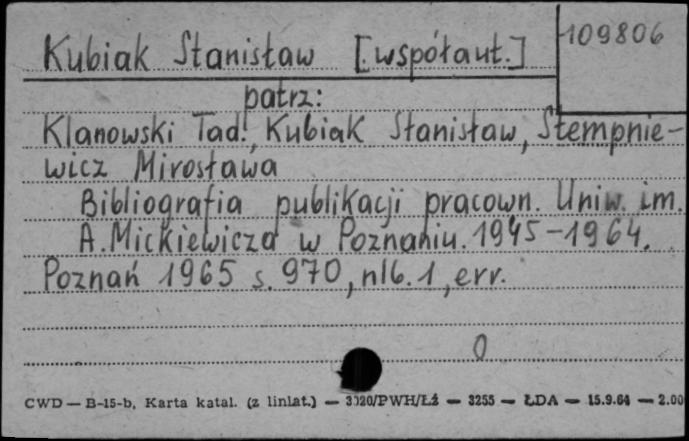 Kubiak Stanisław [współaut.]
109806
patrz:
Klanowski Tad., Kubiak Stanisław, Stempnie-
wicz Mirosława
Bibliografia publikacji pracown. Uniw. im.
A. Mickiewicza w Poznaniu. 1945-1964.
Poznań 1965 s. 970, nlb. 1, err.
0
CWD — B-15-b, Karta katal. (z liniat.) — 3020/PWH/Łź — 3255 — ŁDA — 15.9.64 — 2.00